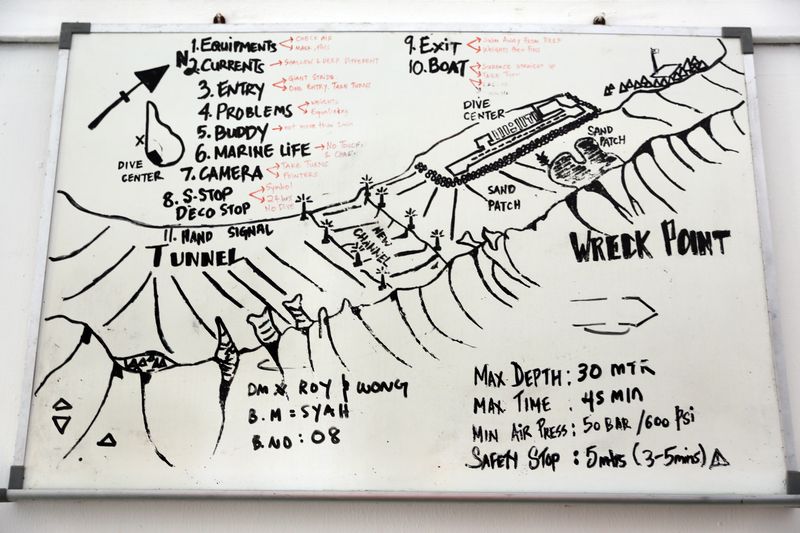 1. EQUIPMENTS
CHECK AIR
MASK, FINS
N
2. CURRENTS
SHALLOW & DEEP DIFFERENT
3. ENTRY
GIANT STRIDE
ONE ENTRY. TAKE TURNS
4. PROBLEMS
WEIGHTS
EQUALIZING
5. BUDDY
not more than
6. MARINE LIFE
NO TOUCH
7. CAMERA
TAKE TURNS
POINTERS
8. S-STOP
DECO STOP
Symbol
24 hrs
NO DIVE
11. HAND SIGNAL
9. EXIT
SWIM AWAY FROM REEF
WEIGHTS then FINS
10. BOAT
SURFACE STRAIGHT UP
TAKE TURN
X
DIVE
CENTER
DIVE
CENTER
SAND
PATCH
SAND
PATCH
NEW
CHANNEL
TUNNEL
WRECK POINT
DM X ROY / WONG
B.M = SYAH
B.NO : 08
MAX DEPTH : 30 MTR
MAX TIME : 45 MIN
MIN AIR PRESS : 50 BAR / 600 PSI
SAFETY STOP : 5 mtrs (3-5 mins)